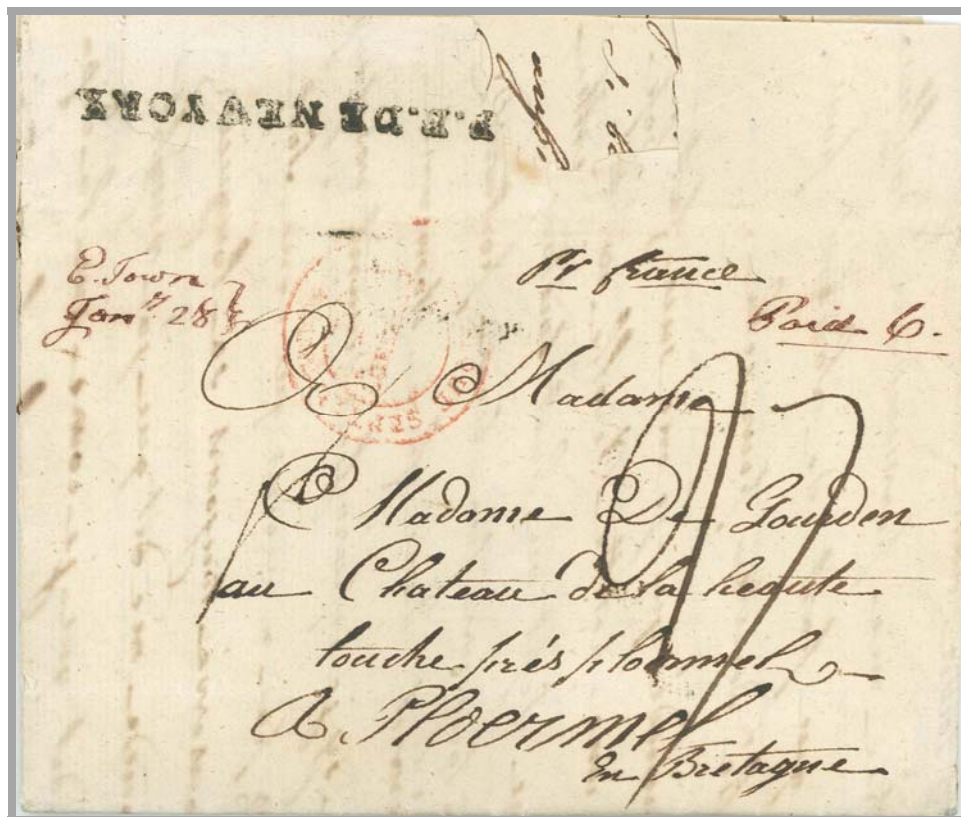 P.P. DE NEW YORK
E. Town
Jany. 28
Pr france
Paid 6.
A Madame
Madame De Gourden
au Chateau de la heaute
touche prés ploermel
A Ploermel
En Bretagne